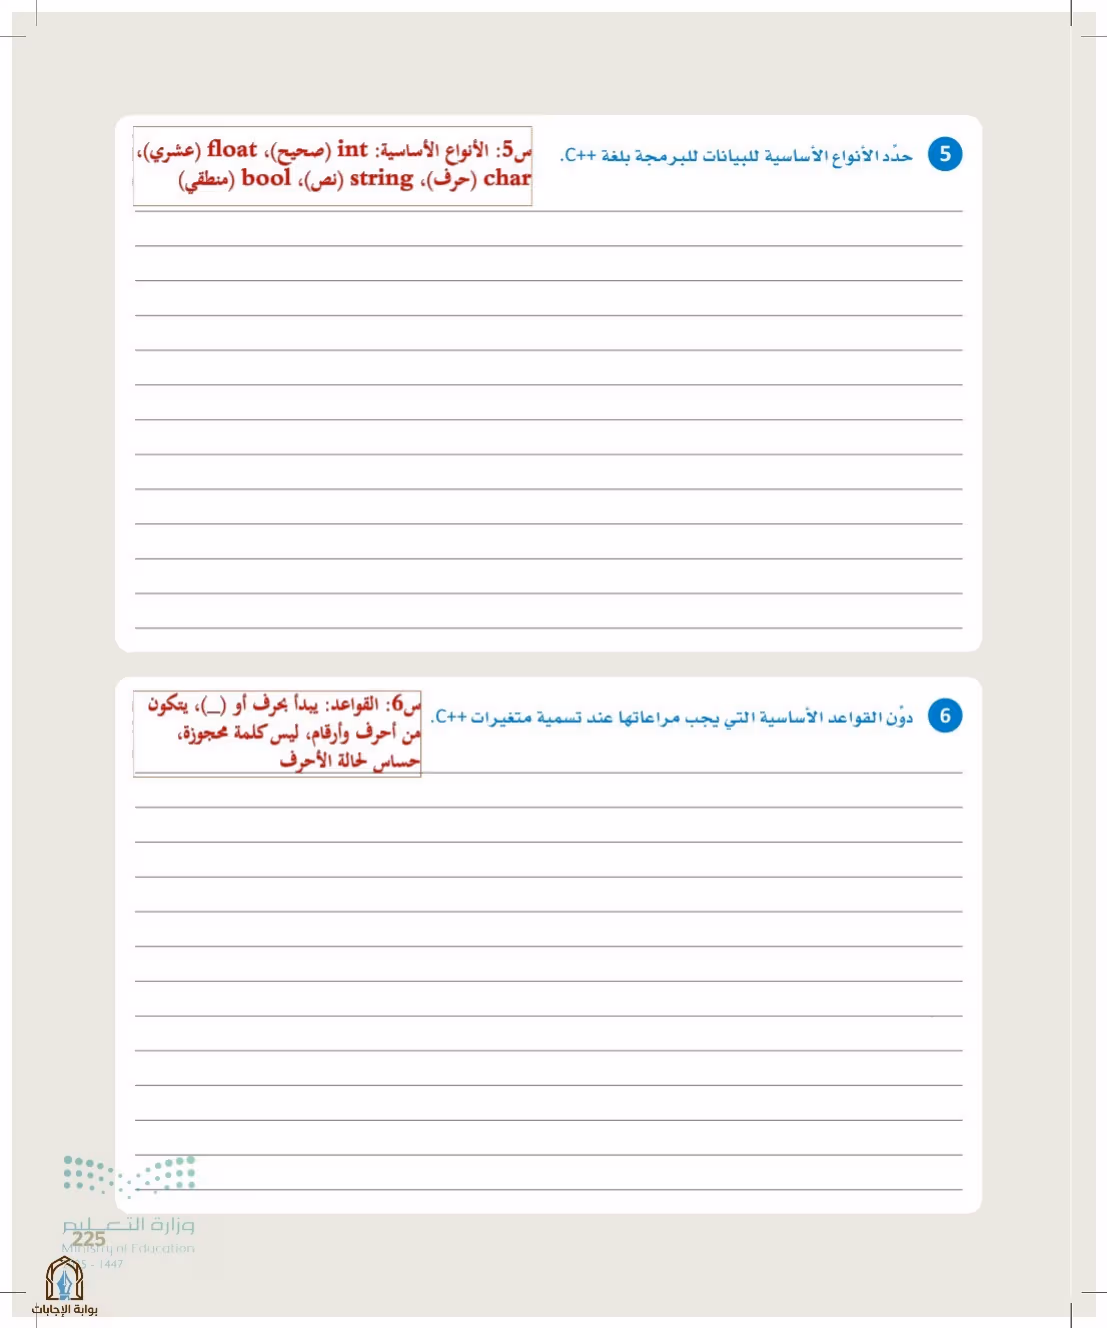 5 حدّد الأنواع الأساسية للبيانات للبرمجة بلغة C++.
س5: الأنواع الأساسية: int (صحيح)، float (عشري)،
char (حرف)، string (نص)، bool (منطقي)
6 دوّن القواعد الأساسية التي يجب مراعاتها عند تسمية متغيرات C++.
س6: القواعد: يبدأ بحرف أو (_)، يتكون
من أحرف وأرقام، ليس كلمة محجوزة،
حساس لحالة الأحرف
وزارة التعليم
225
Ministry of Education
5 - 1447
بوابة الإجابات